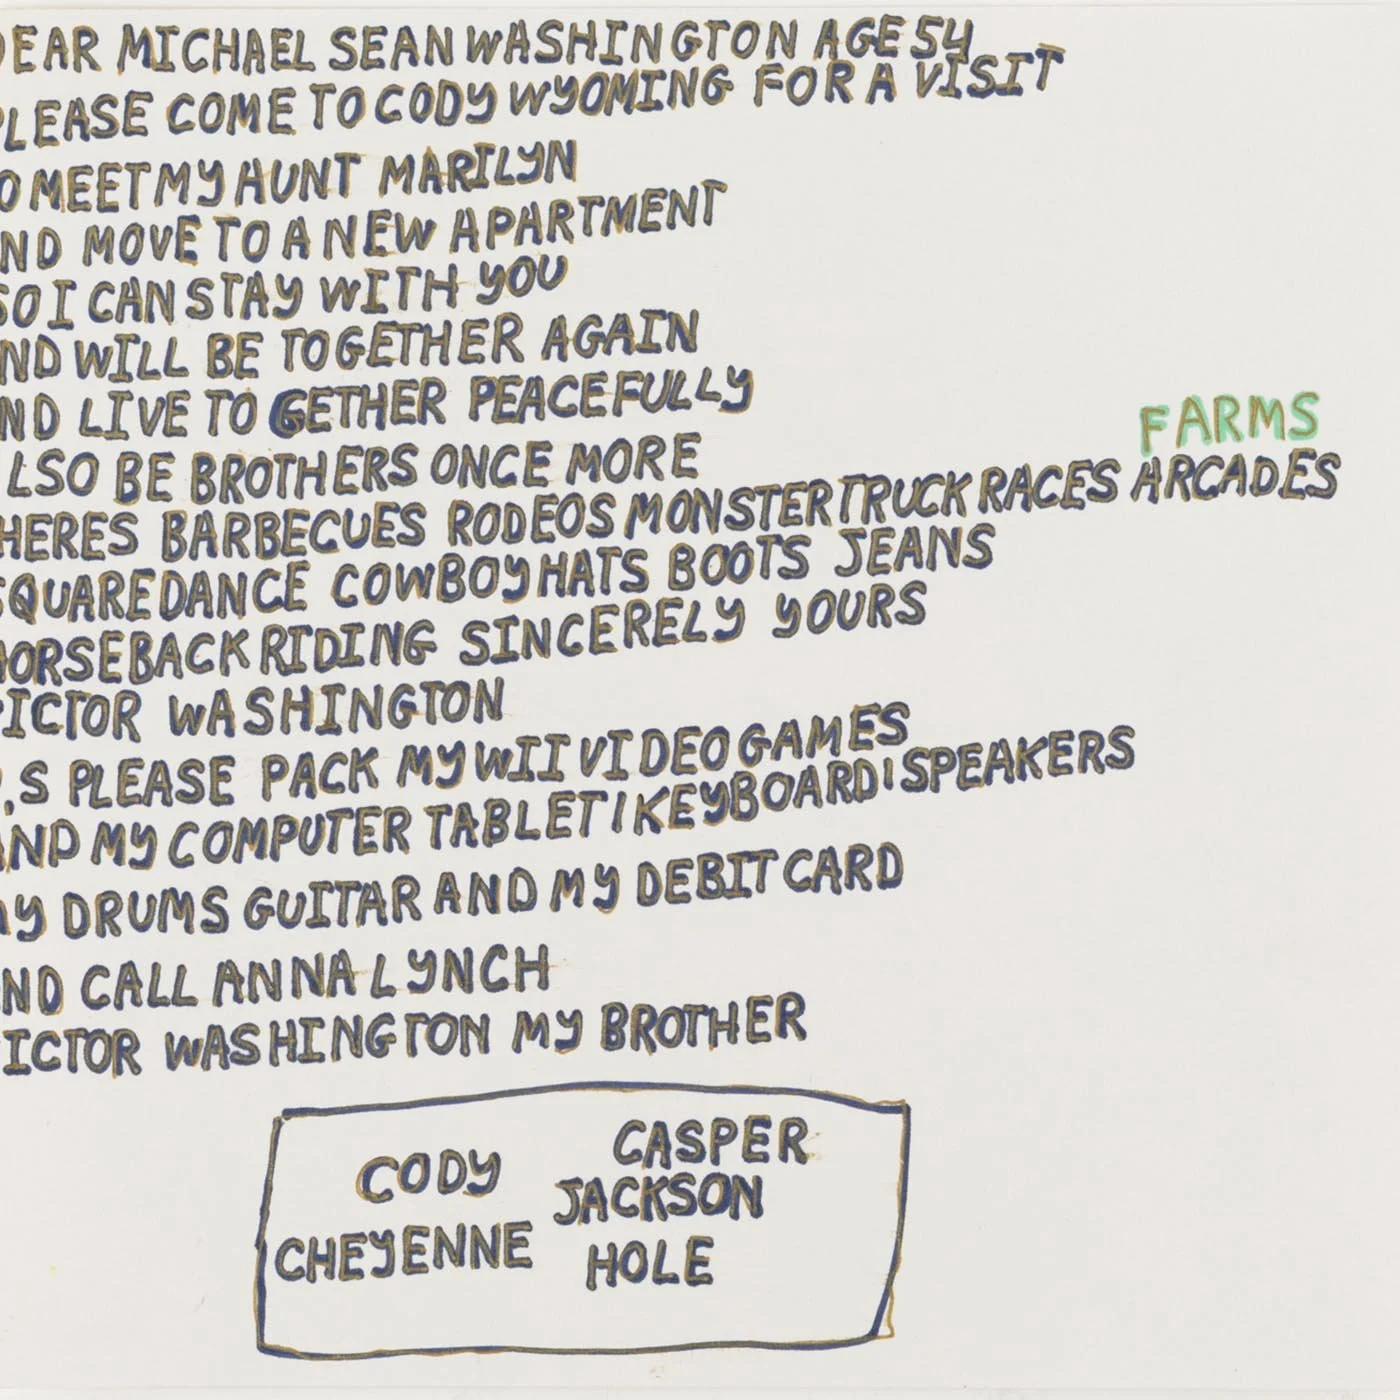 DEAR MICHAEL SEAN WASHINGTON AGE 54
PLEASE COME TO CODY WYOMING FOR A VISIT
O MEET MY AUNT MARILYN
ND MOVE TO A NEW APARTMENT
SO I CAN STAY WITH YOU
ND WILL BE TOGETHER AGAIN
ND LIVE TO GETHER PEACEFULLY
LSO BE BROTHERS ONCE MORE
FARMS
HERES BARBECUES RODEOS MONSTER TRUCK RACES ARCADES
SQUARE DANCE COWBOY HATS BOOTS JEANS
HORSEBACK RIDING SINCERELY YOURS
VICTOR WASHINGTON
P.S PLEASE PACK MY WII VIDEO GAMES
AND MY COMPUTER TABLET / KEYBOARD / SPEAKERS
MY DRUMS GUITAR AND MY DEBIT CARD
ND CALL ANNA LYNCH
VICTOR WASHINGTON MY BROTHER
CASPER
CODY
JACKSON
CHEYENNE HOLE